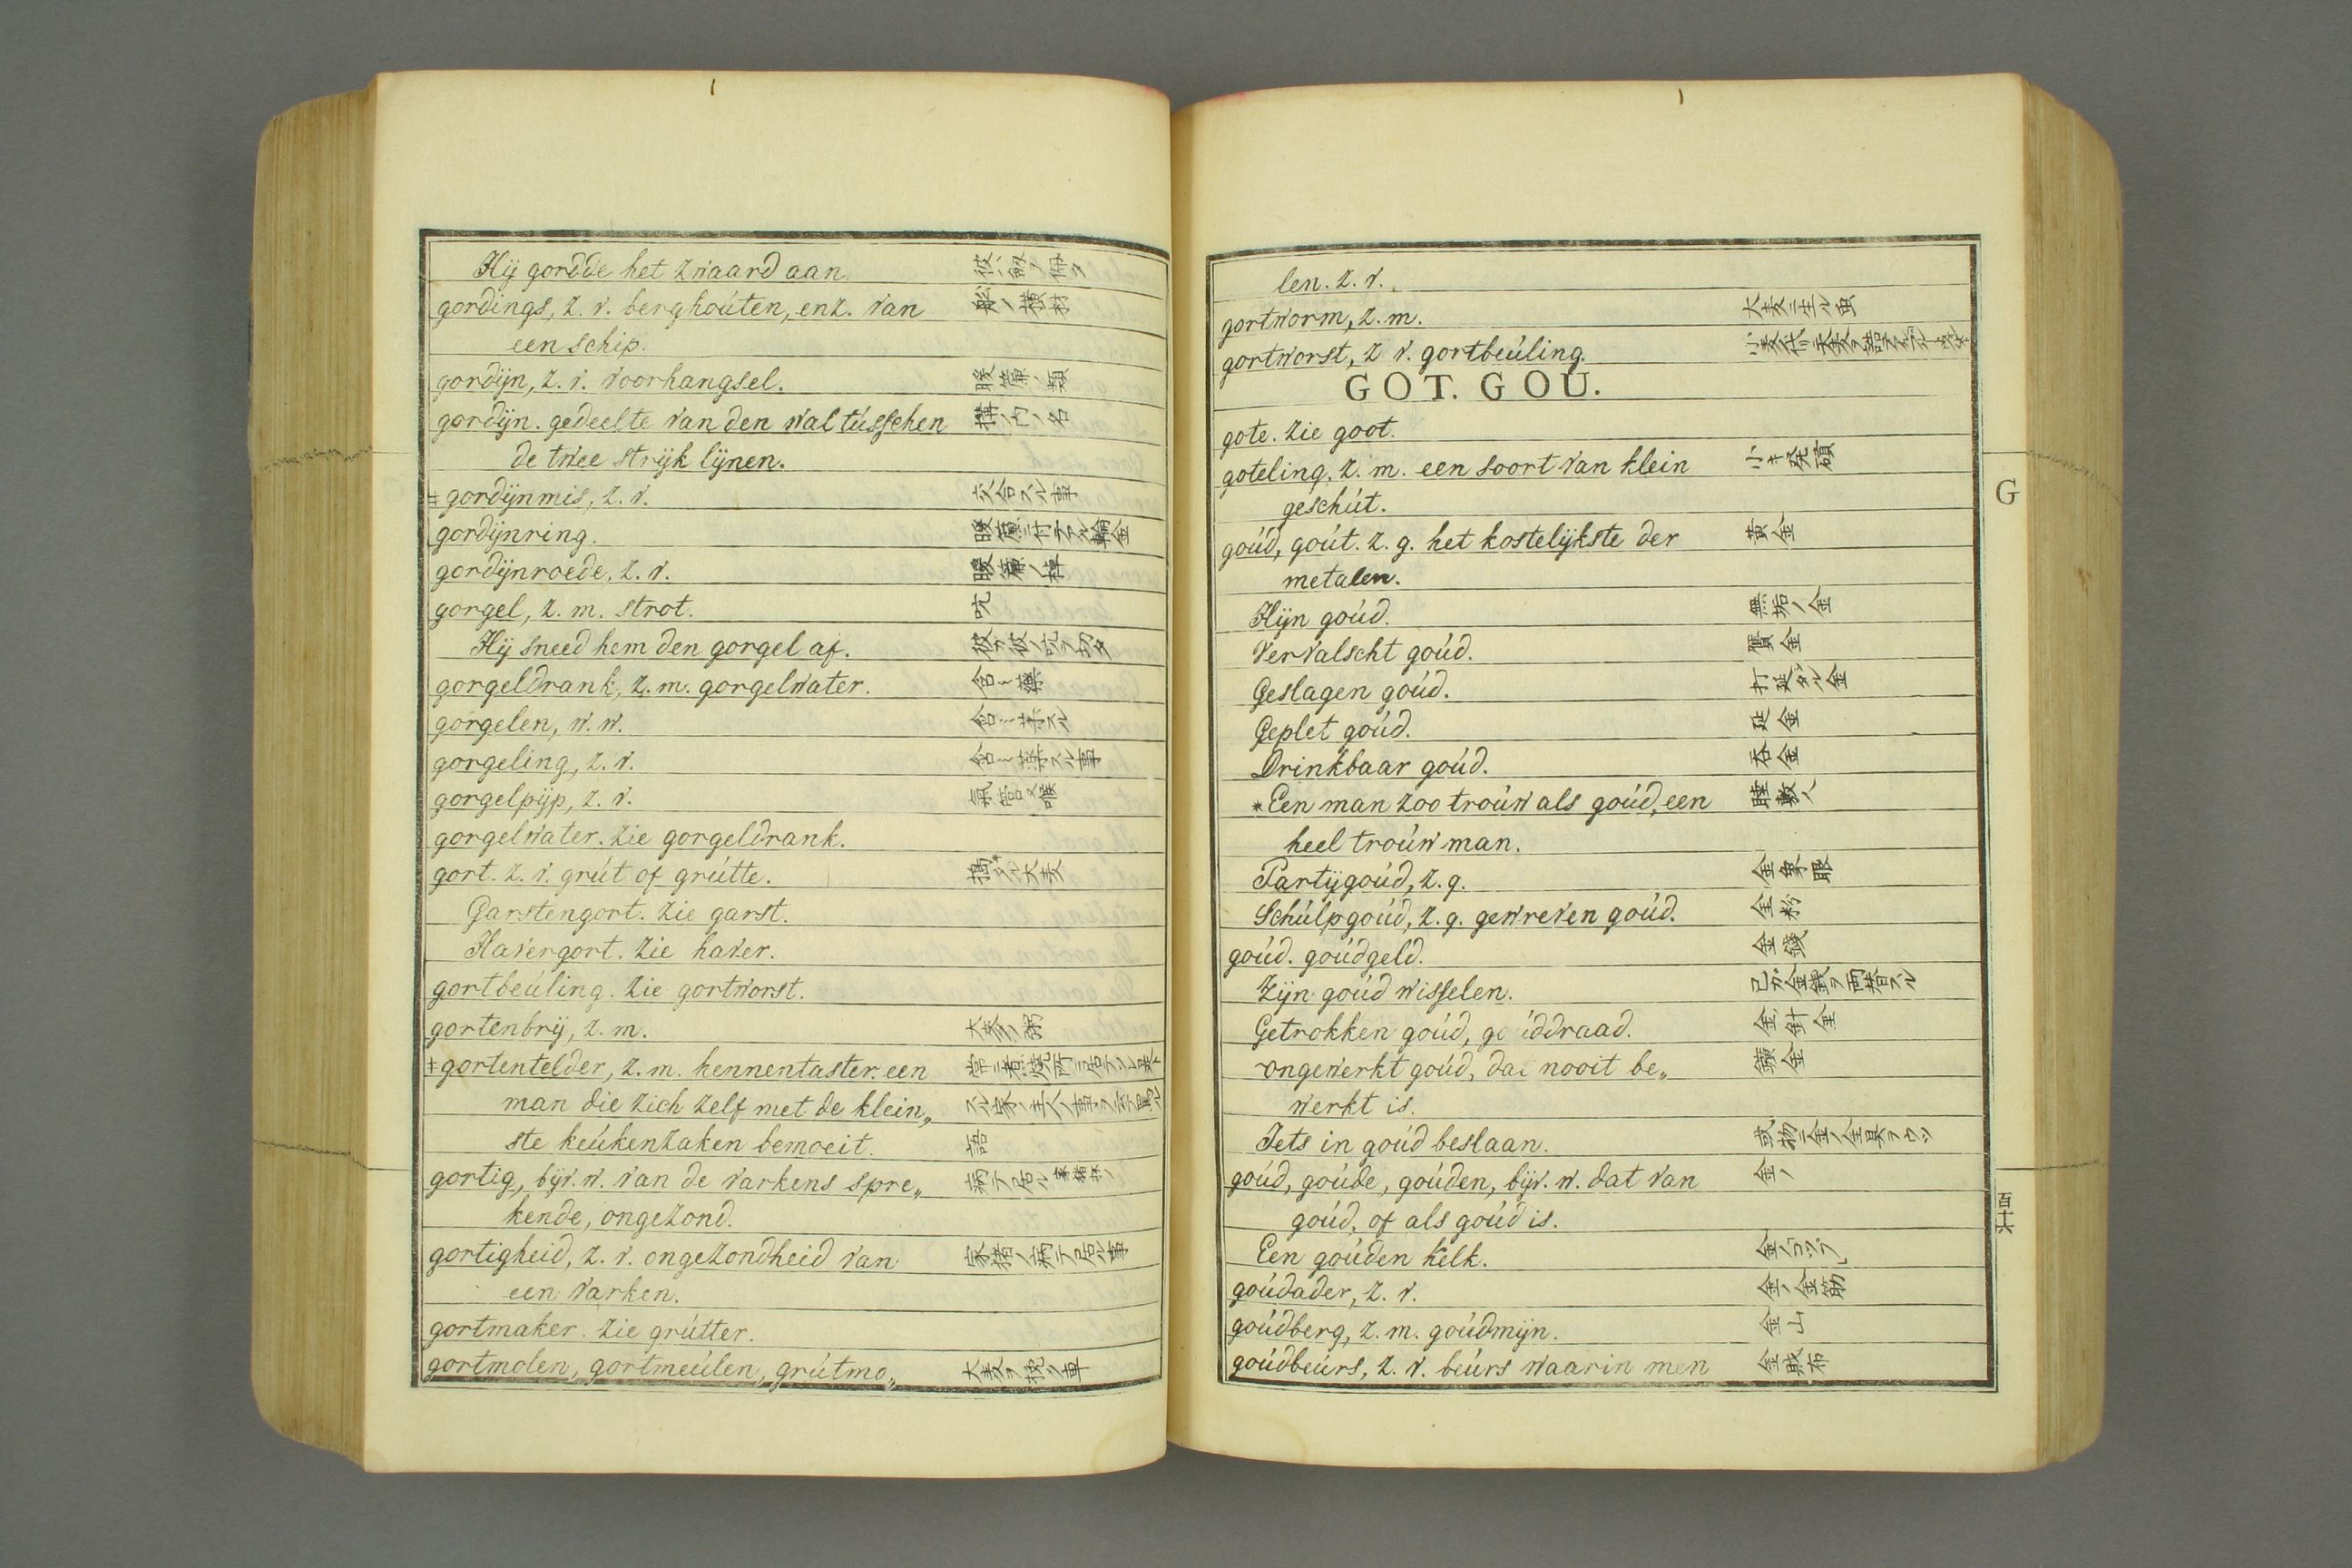 Hij gordde het zwaard aan. 彼ハ劔ヲ佩タ
gordings, z. v. berghoúten, enz. van 舩ノ横材
een schip.
gordijn, z. v. voorhangsel. 暖簾ノ類
gordijn. gedeelte van den wal tússchen 搆ノ内ノ名
de twee strijk lijnen.
‡gordijnmis, z. v. 交合スル事
gordijnring. 暖簾ニ付テアル輪金
gordijnroede, z. v. 暖簾ノ棹
gorgel, z. m. strot. 吭
Hij sneed hem den gorgel af. 彼ガ彼ノ吭ヲ切タ
gorgeldrank, z. m. gorgelwater. 含ミ藥
gorgelen, w. w. 含ミ茶スル
gorgeling, z. v. 含ミ藥スル事
gorgelpijp, z. v. 氣管又喉
gorgelwater. zie gorgeldrank.
gort. z. v. grút of grútte. 搗タル大麦
Garstengort. zie garst.
Havergort. zie haver.
gortbeúling. zie gortworst.
gortenbrij, z. m. 大麦ノ粥
‡gortentelder, z. m. hennentaster. een
man die zich zelf met de klein„
ste keúkenzaken bemoeit. 語
gortig, bijv. w. van de varkens spre„ 病テ居ル
kende, ongezond.
gortigheid, z. v. ongezondheid van 家猪ノ病テ居ル事
een varken.
gortmaker. zie grútter.
gortmolen, gortmeúlen, grútmo„ 大麦ヲ挽ク車
len. z. v.
gortworm, z. m. 大麦ニ生ル虫
gortworst, z v. gortbeúling.
GOT. GOU.
gote. zie goot.
goteling, z. m. een soort van klein 小キ発碩
geschút.
goúd, goút. z. g. het kostelijkste der 黄金
metalen.
Fijn goúd. 無垢ノ金
Vervalscht goúd. 贋金
Geslagen goúd. 打延タル金
Geplet goúd. 延金
Drinkbaar goúd. 呑金
*Een man zoo troúw als goúd, een
heel troúw man.
Partijgoúd, z. g.
Schúlpgoúd, z. g. gewreven goúd. 金粉
goúd. goúdgeld. 金錢
Zijn goúd wisselen. 己ガ金錢ヲ両替スル
Getrokken goúd, go úddraad. 金ノ針金
ongewerkt goúd, dat nooit be„ 鑛金
werkt is.
Iets in goúd beslaan. 或物ニ金ノ金具ヲウツ
goúd, goúde, goúden, bijv. w. dat van 金ノ
goúd, of als goúd is.
Een goúden kelk. 金ノコップ
goúdader, z. v. 金ノ金筋
goúdberg, z. m. goúdmijn. 金山
goúdbeúrs, z. v. beúrs waarin men 金財布
G
百十六